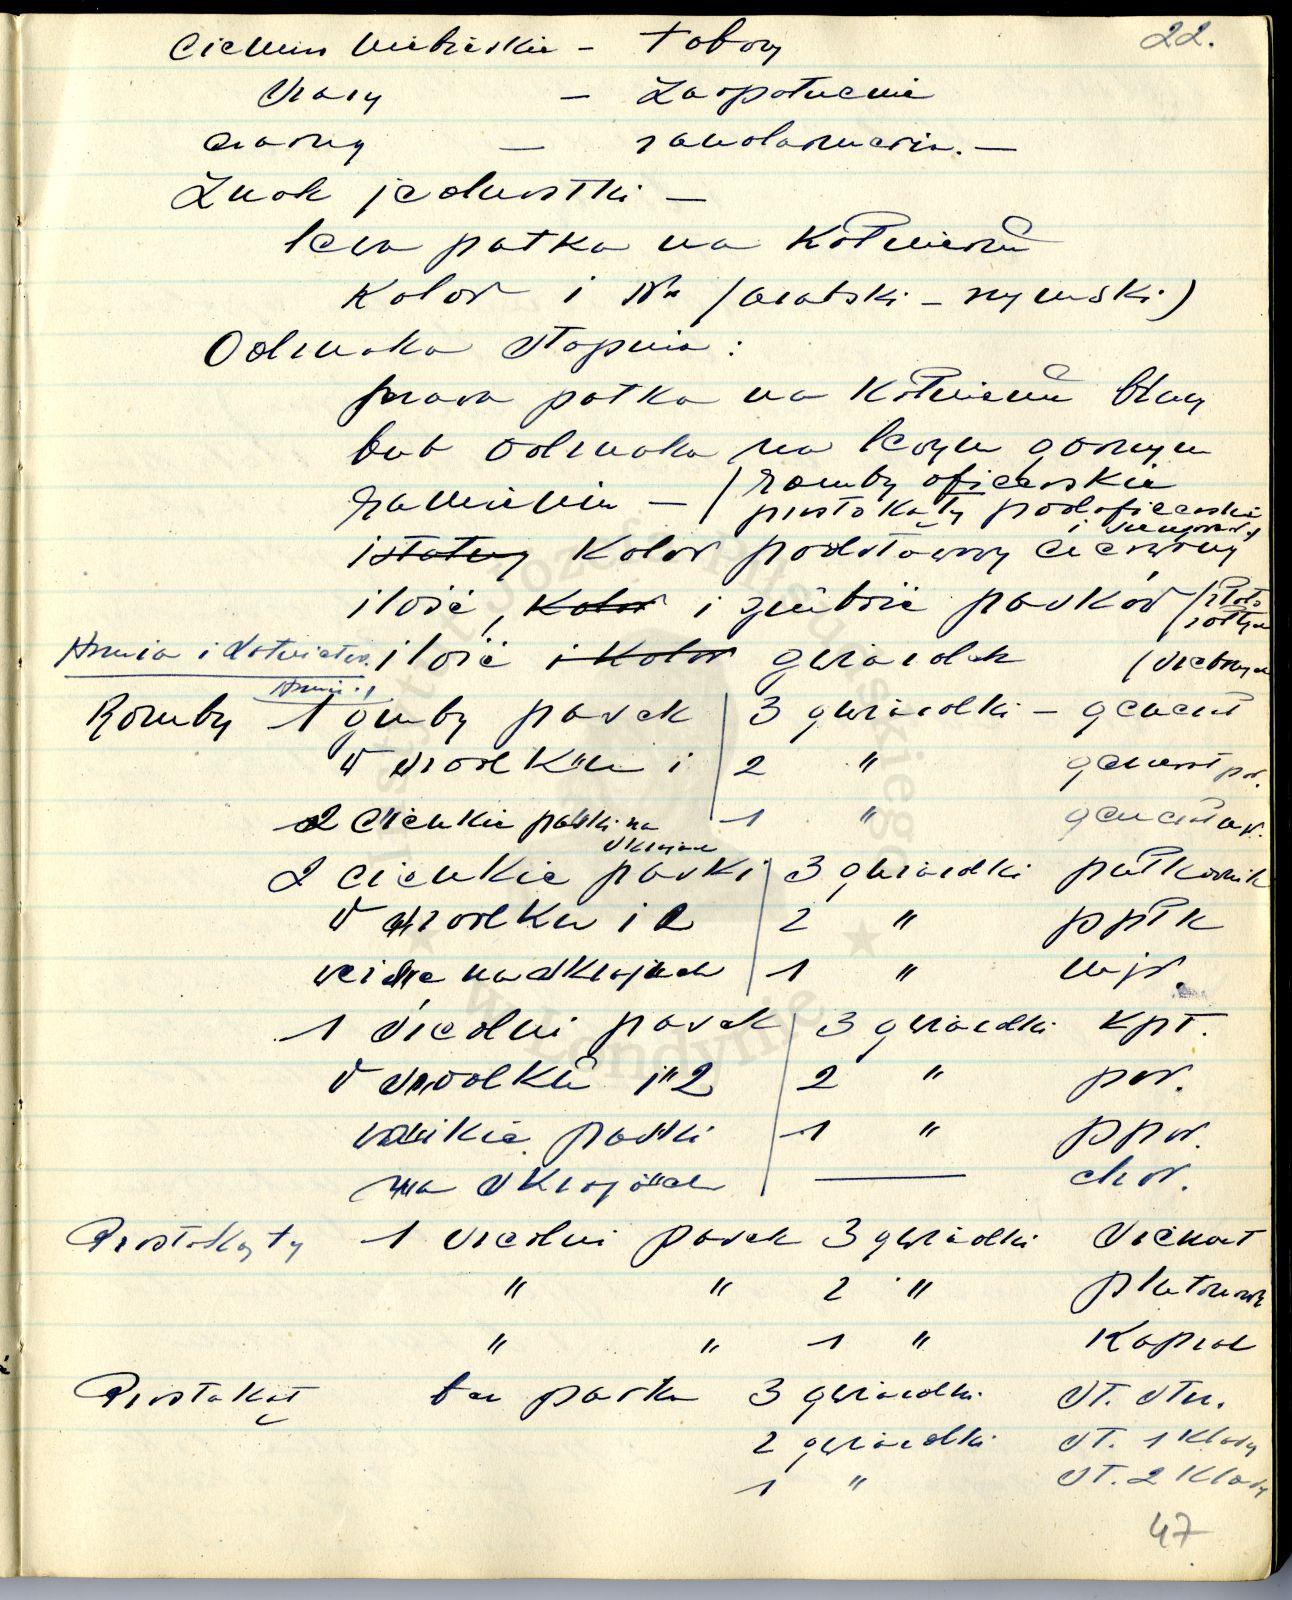 22.
Ciemno niebieskie – tabory
Szary – Zaopatrzenie
czarny – żandarmeria. –
Znak jednostki –
lewa patka na kołnierzu
Kolor i Nr (arabski – rzymski)
Odznaka stopnia:
prawa patka na kołnierzu bluzy
lub odznaka na lewym górnym
ramieniu – (romby oficerskie
prostokąty podoficerskie
i szeregowi)
i stały Kolor podstawowy czerwony
ilość, Kolor i grubość pasków (złoto
żółty
Armia i Lotnictwo. ilość i Kolor gwiazdek (srebrny
Armii.
Romby 1 gruby pasek 3 gwiazdki – generał
w środku i 2 " generał por.
2 cienkie paski na 1 " generał
skrajach
2 cienkie paski 3 gwiazdki pułkownik
w środku i 2 2 " ppłk
na skrajach 1 " mjr.
1 średni pasek 3 gwiazdki kpt.
w środku i 2 2 " por.
cienkie paski 1 " ppor.
na skrajach — chor.
Prostokąty 1 średni pasek 3 gwiazdki sierżant
" " 2 " plutonowy
" " 1 " Kapral
Prostokąt bez paska 3 gwiazdki st. strz.
2 gwiazdki st. 1 Klasy
1 " st. 2 Klasy
47
Józefa Piłsudskiego
w Londynie